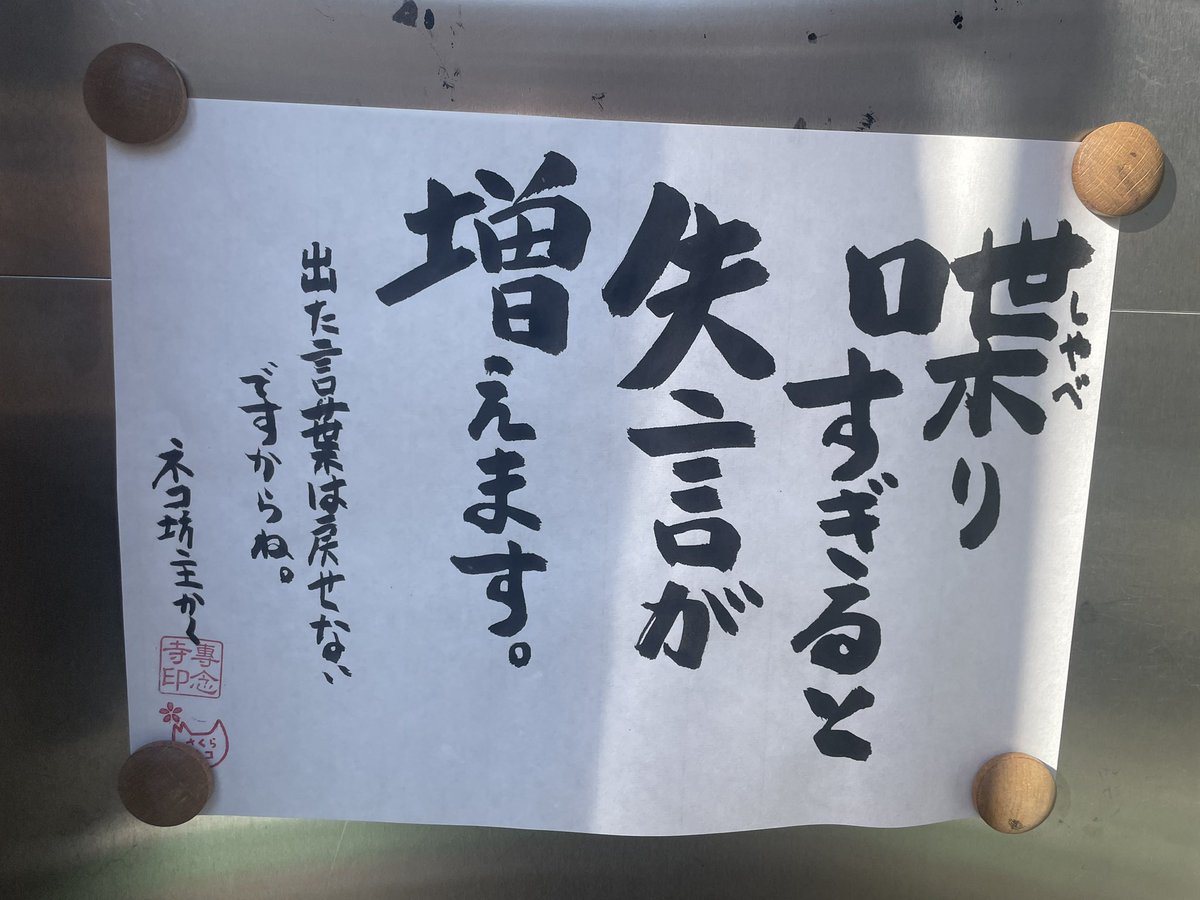 喋り
しゃべ
すぎると
失言が
増えます。
出た言葉は戻せない
ですからね。
ネコ坊主かく
專念
寺印
さくら